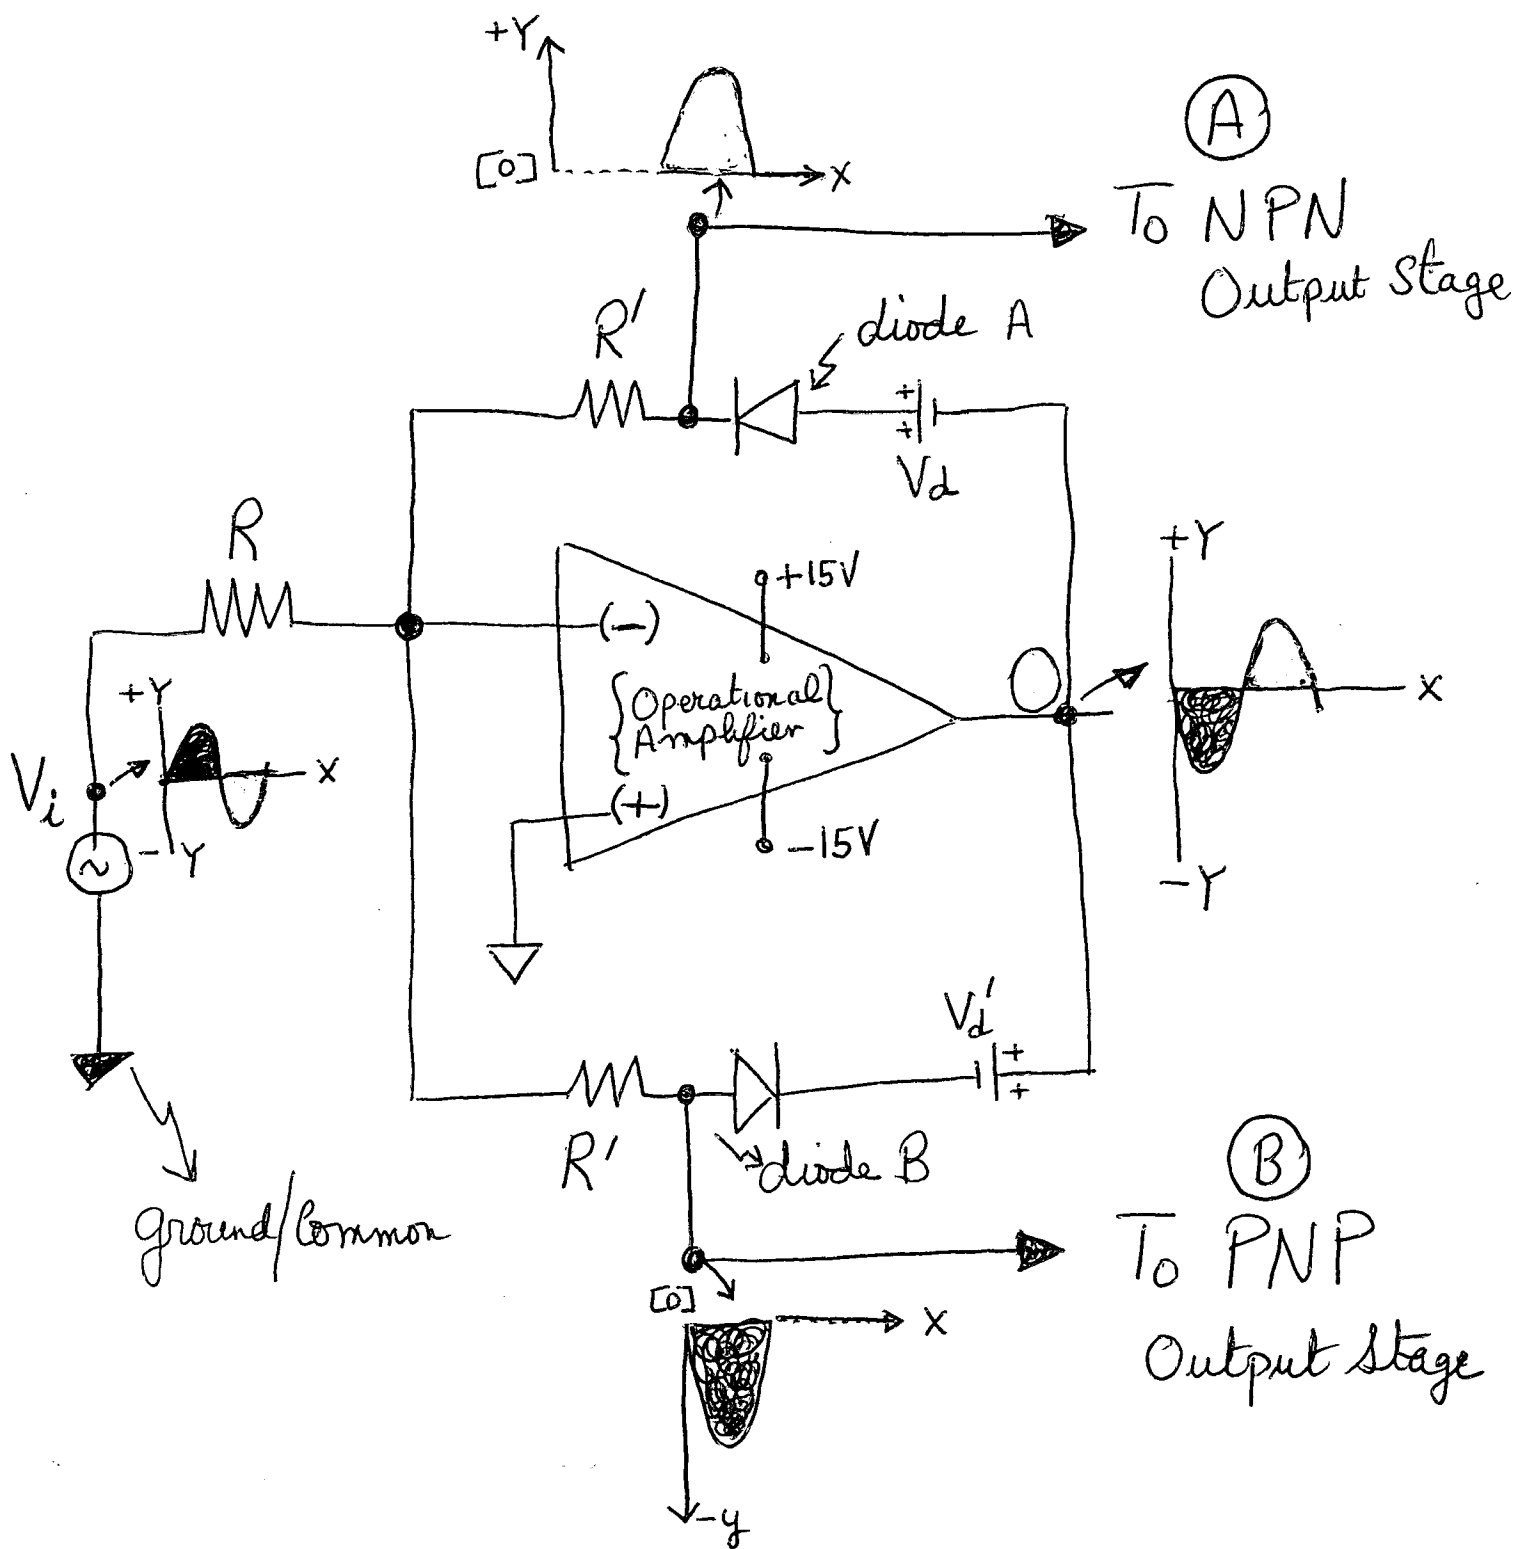 +Y
[0]
X
A
To NPN
Output Stage
R'
diode A
+
+
Vd
R
+15V
(-)
+Y
{Operational
Amplifier}
O
X
+Y
X
Vi
~
-Y
(+)
-15V
-Y
Vd'
+
+
R'
diode B
B
ground/Common
To PNP
[0]
X
Output Stage
-y